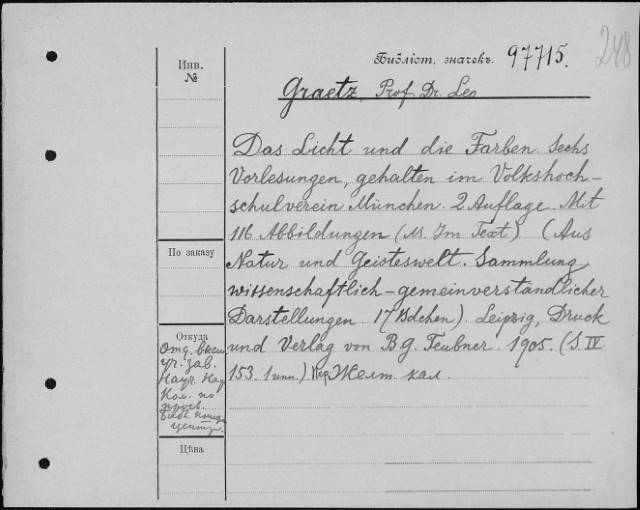 248
Библіот. значекъ. 97715.
Инв.
№
Graetz, Prof. Dr. Leo
Das Licht und die Farben. Sechs
Vorlesungen, gehalten im Volkshoch-
schulverein München. 2 Auflage. Mit
116 Abbildungen (M. Im Text). (Aus
Natur und Geisteswelt. Sammlung
wissenschaftlich-gemeinverständlicher
Darstellungen. 17 Bdchen). Leipzig, Druck
und Verlag von B. G. Teubner. 1905. (S. IV
153. 1 unn.) Желт. кал.
По заказу
Откуда
Отд. Высш
уч. зав.
Науч.
Кол. по
Цѣна